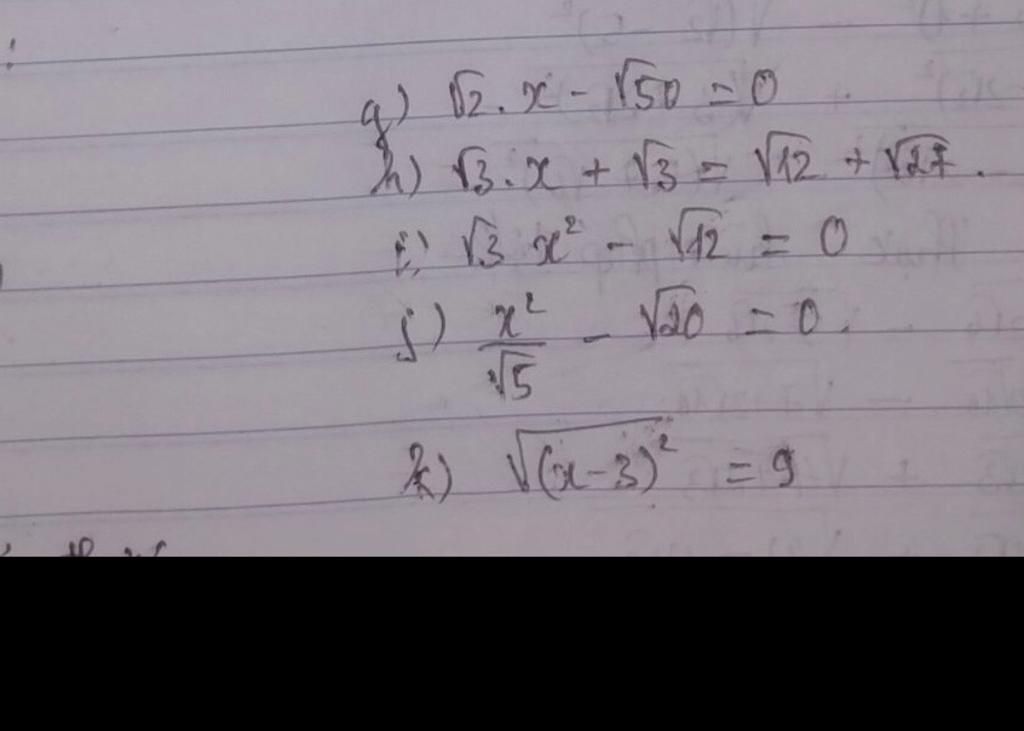 g) √2. x - √50 = 0
h) √3. x + √3 = √12 + √27.
i) √3 x² - √12 = 0
j) x²/√5 - √20 = 0.
k) √(x-3)² = 9